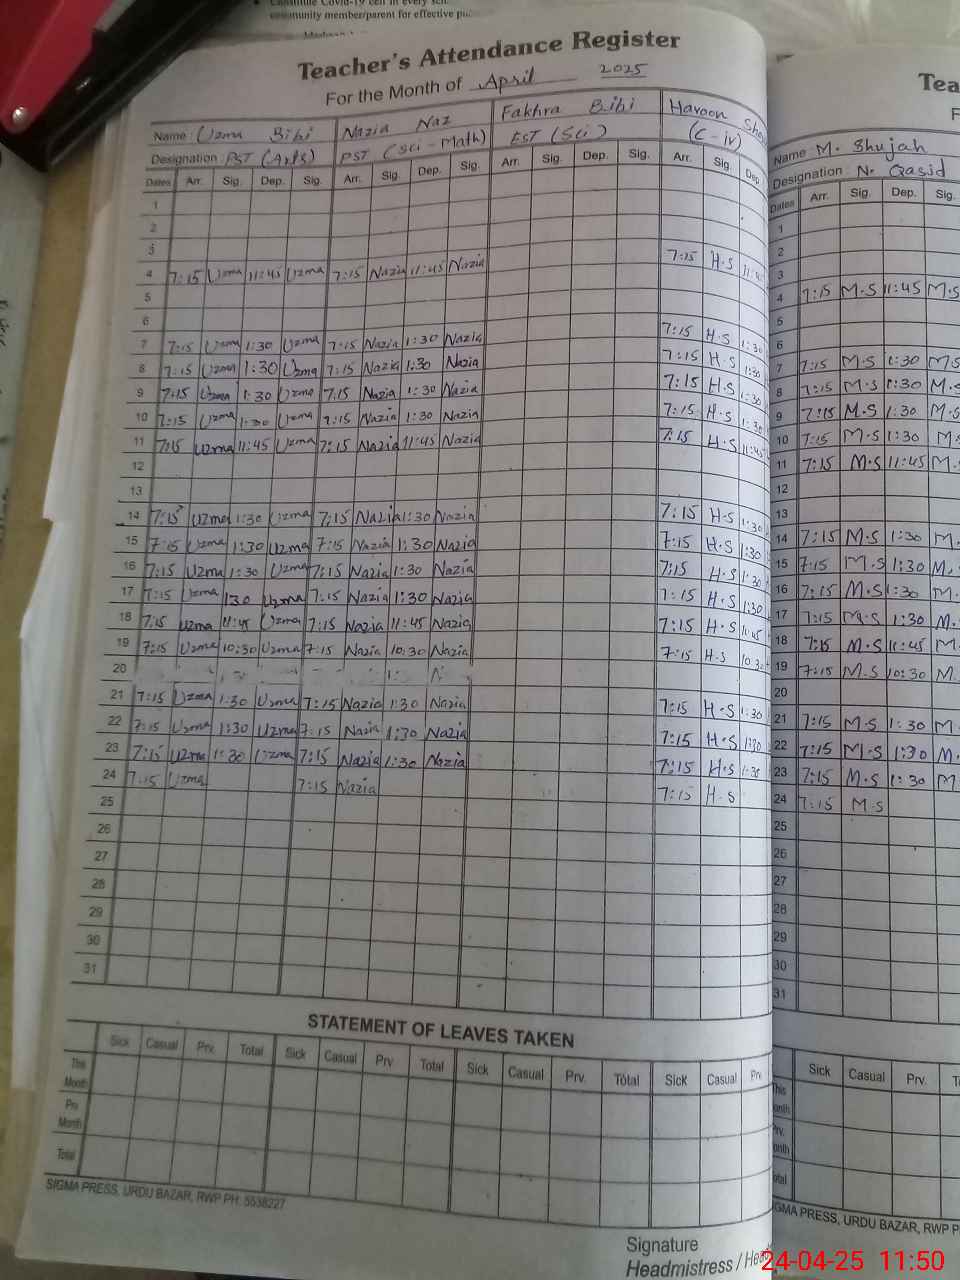 community member/parent for effective
Teacher's Attendance Register
For the Month of April 2025
Name : Uzma Bibi Nazia Naz Fakhra Bibi Haroon
Designation : PST (Arts) PST (Sci - Math) EST (Sci) (C-iv)
Dates Arr. Sig. Dep. Sig. Arr. Sig. Dep. Sig. Arr. Sig. Dep. Sig. Arr. Sig. Dep
1
2
3
4 7:15 Uzma 11:45 Uzma 7:15 Nazia 11:45 Nazia 7:15 H.S
5
6
7 7:15 Uzma 1:30 Uzma 7:15 Nazia 1:30 Nazia 7:15 H.S 1:30
8 7:15 Uzma 1:30 Uzma 7:15 Nazia 1:30 Nazia 7:15 H.S 1:30
9 7:15 Uzma 1:30 Uzma 7:15 Nazia 1:30 Nazia 7:15 H.S 1:30
10 7:15 Uzma 1:30 Uzma 7:15 Nazia 1:30 Nazia 7:15 H.S 1:30
11 7:15 Uzma 11:45 Uzma 7:15 Nazia 11:45 Nazia 7:15 H.S 11:45
12
13
14 7:15 Uzma 1:30 Uzma 7:15 Nazia 1:30 Nazia 7:15 H.S 1:30
15 7:15 Uzma 1:30 Uzma 7:15 Nazia 1:30 Nazia 7:15 H.S 1:30
16 7:15 Uzma 1:30 Uzma 7:15 Nazia 1:30 Nazia 7:15 H.S 1:30
17 7:15 Uzma 1:30 Uzma 7:15 Nazia 1:30 Nazia 7:15 H.S 1:30
18 7:15 Uzma 11:45 Uzma 7:15 Nazia 11:45 Nazia 7:15 H.S
19 7:15 Uzma 10:30 Uzma 7:15 Nazia 10:30 Nazia 7:15 H.S 10:30
20
21 7:15 Uzma 1:30 Uzma 7:15 Nazia 1:30 Nazia 7:15 H.S 1:30
22 7:15 Uzma 1:30 Uzma 7:15 Nazia 1:30 Nazia 7:15 H.S 1:30
23 7:15 Uzma 1:30 Uzma 7:15 Nazia 1:30 Nazia 7:15 H.S 1:30
24 7:15 Uzma 7:15 Nazia 7:15 H.S
25
26
27
28
29
30
31
STATEMENT OF LEAVES TAKEN
Sick Casual Prv. Total Sick Casual Prv Total Sick Casual Prv. Total Sick Casual Prv.
This Month
Prv Month
Total
SIGMA PRESS, URDU BAZAR, RWP PH: 5538227
Signature
Headmistress / Head
Name : M. Shujah
Designation : N. Qasid
Dates Arr. Sig. Dep. Sig.
1
2
3
4 7:15 M.S 11:45 M.S
5
6
7 7:15 M.S 1:30 M.S
8 7:15 M.S 1:30 M.S
9 7:15 M.S 1:30 M.S
10 7:15 M.S 1:30 M.
11 7:15 M.S 11:45 M.
12
13
14 7:15 M.S 1:30 M.
15 7:15 M.S 1:30 M.
16 7:15 M.S 1:30 M.
17 7:15 M.S 1:30 M.
18 7:15 M.S 11:45 M.
19 7:15 M.S 10:30 M.
20
21 7:15 M.S 1:30 M.
22 7:15 M.S 1:30 M.
23 7:15 M.S 1:30 M.
24 7:15 M.S
25
26
27
28
29
30
31
Sick Casual Prv.
SIGMA PRESS, URDU BAZAR, RWP P
24-04-25 11:50